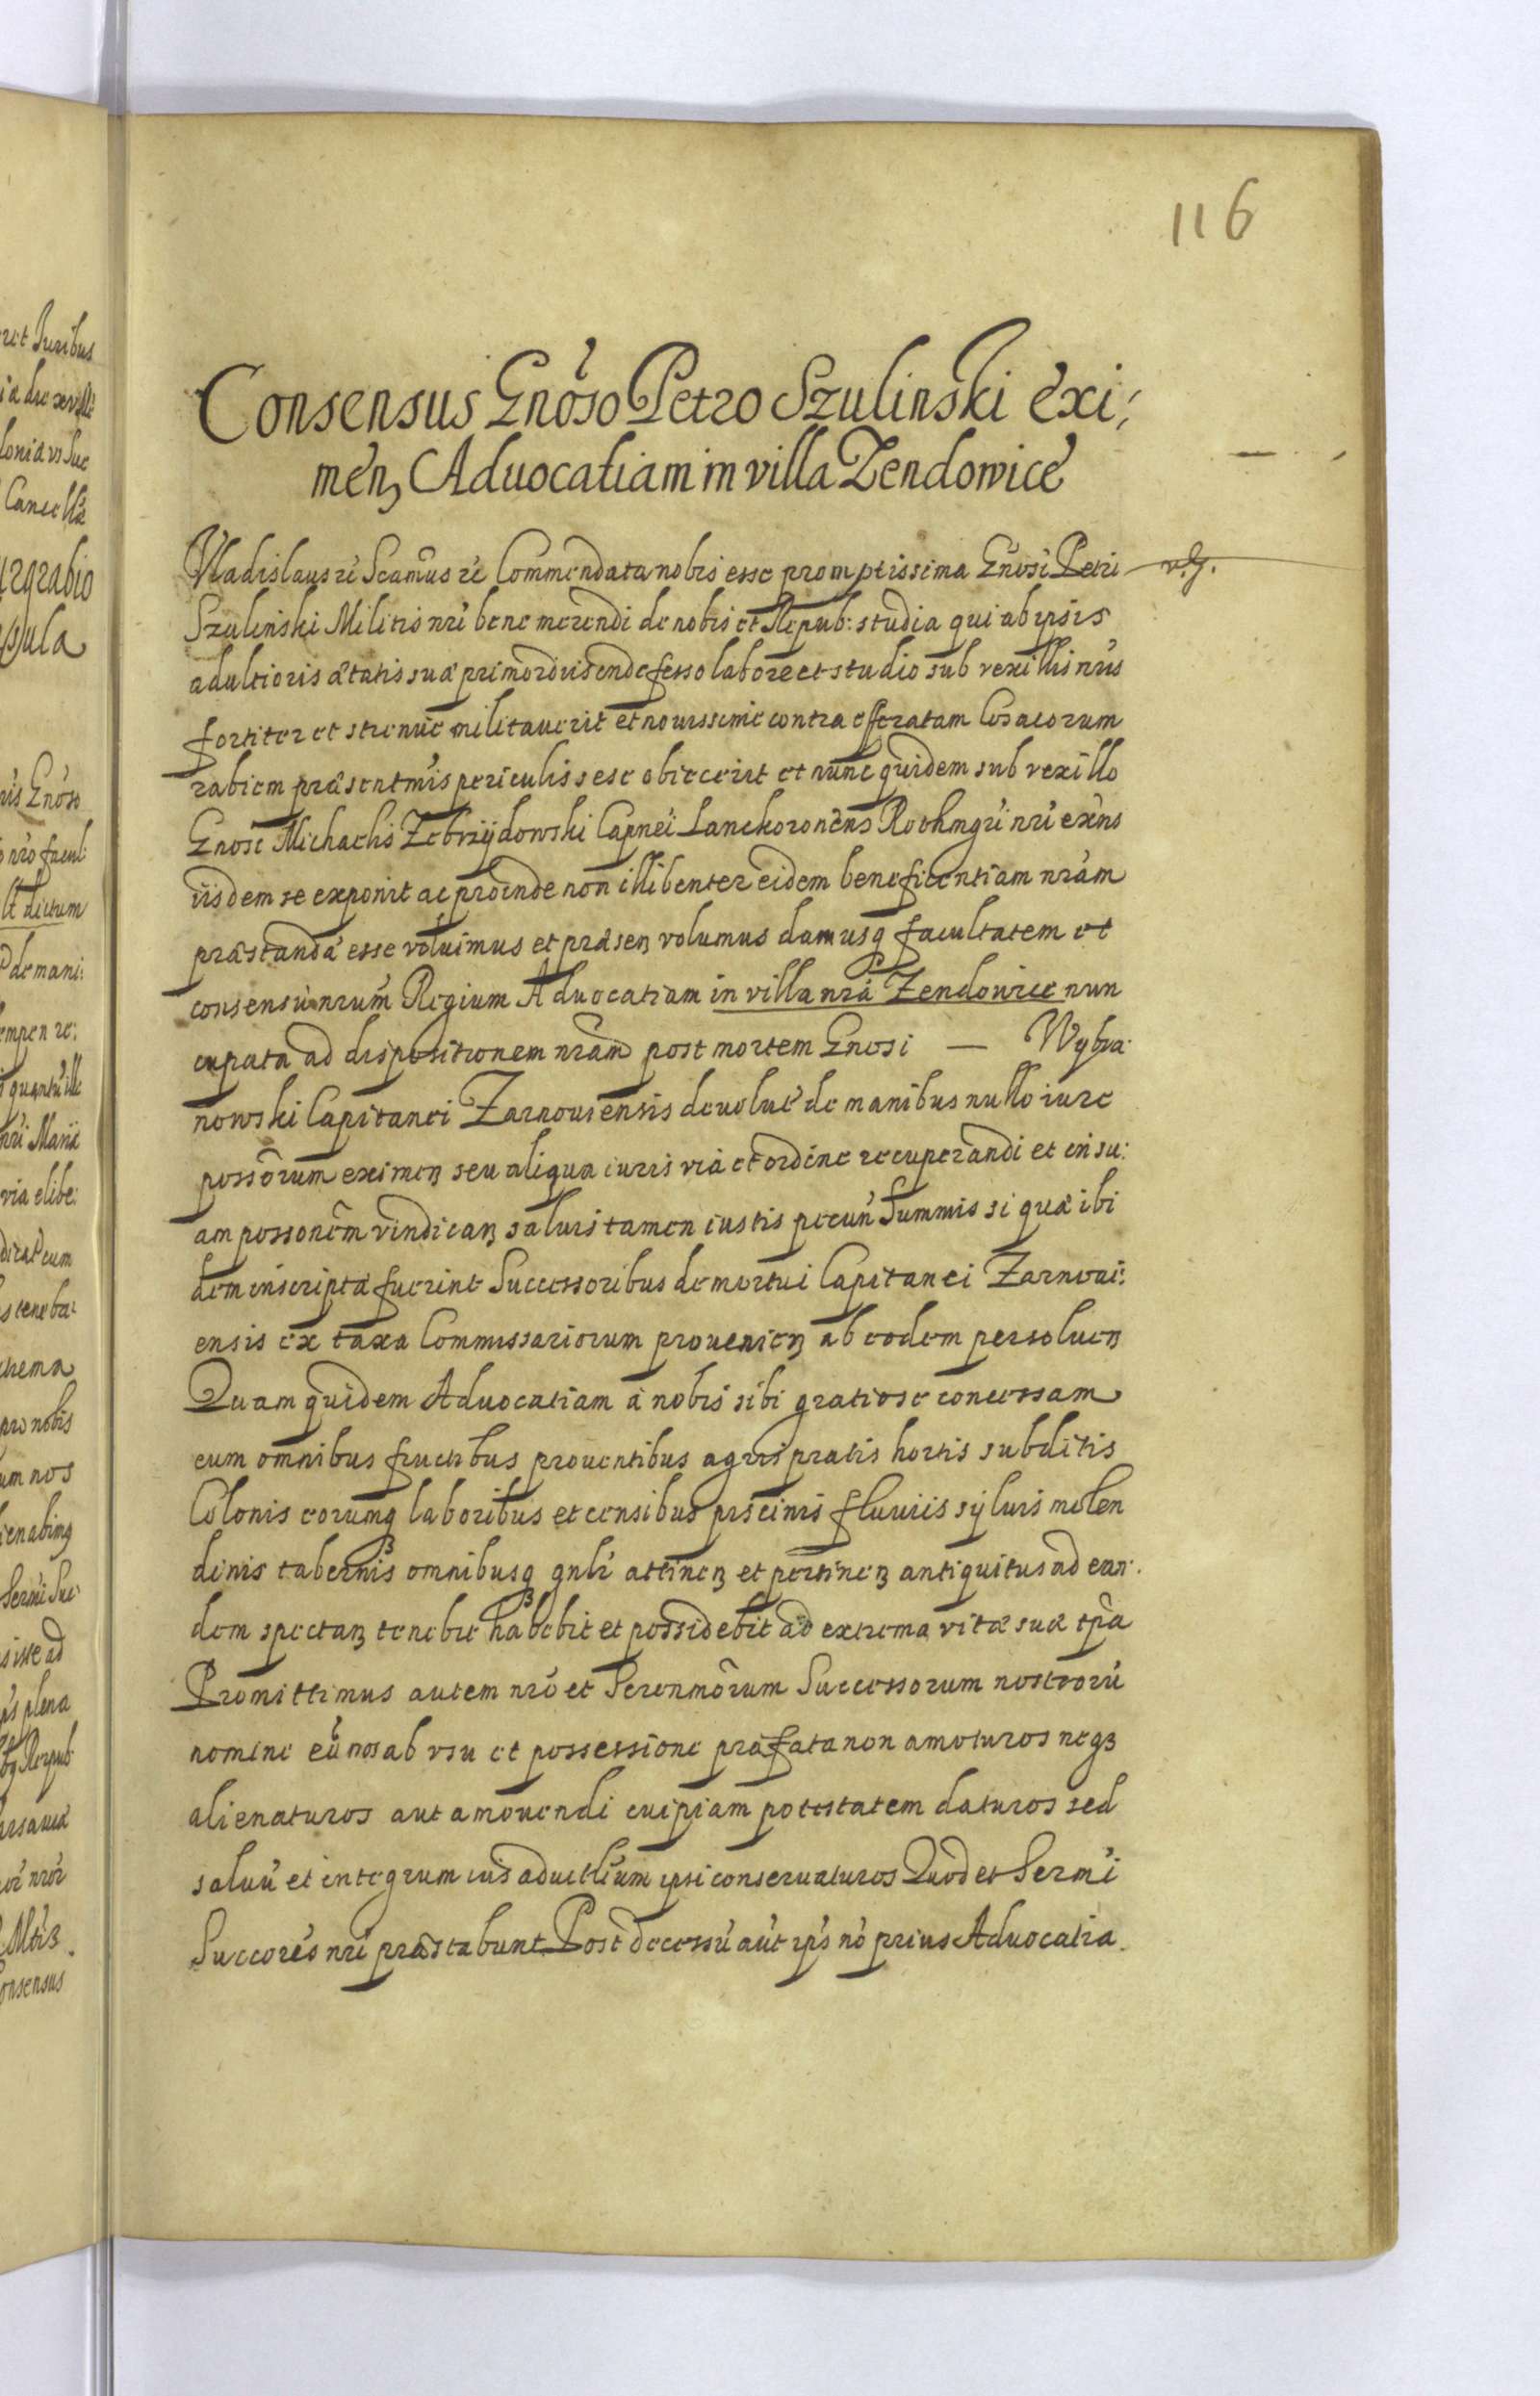 116
Consensus Gnoso Petro Szulinski exi:
men, Aduocatiam in villa Zendowice
Vladislaus rc Scamus rc Commendata nobis esse promptissima Gnosi Petri
Szulinski Militis nri bene merendi de nobis et Repub: studia qui ab ipsis
adultioris ætatis suæ primordiis indefesso labore et studio sub vexillis nris
fortiter et strenue militauerit et nouissime contra efferatam Cosacorum
rabiem præsentmis periculis sese obiecerit et nunc quidem sub vexillo
Gnosi Michaelis Zebrzÿdowski Capnei Lanckoronens Rothmgri nri exns
iisdem se exponit ac proinde non illibenter eidem beneficentiam nram
præstandā esse voluimus et præsen volumus damusq facultatem et
consensū nrum Regium Aduocatiam in villa nra Zendowice nun
cupata ad dispositionem nram post mortem Gnosi — Wybra:
nowski Capitanei Zarnouiensis deuolut de manibus nullo iure
possorum eximen seu aliqua iuris via et ordine recuperandi et in su:
am possonem vindican saluis tamen iustis pecun Summis si quæ ibi
dem inscriptæ fuerint Successoribus demortui Capitanei Zarnoui:
ensis ex taxa Commissariorum prouenien ab eodem persoluen
Quam quidem Aduocatiam à nobis sibi gratiose concessam
cum omnibus fructibus prouentibus agris pratis hortis subditis
Colonis eorumq laboribus et censibus piscinis fluuiis sÿluis molen
dinis tabernis omnibusq gnlr attinen et pertinen antiquitus ad ean:
dem spectan tenebit habebit et possidebit ad extrema vitæ suæ tpa
Promittimus autem nro et Serenmorum Successorum nostrorū
nomine eū nos ab vsu et possessione præfata non amoturos neq
alienaturos aut amouendi cuipiam potestatem daturos sed
saluū et integrum ius aduitlium ipsi conseruaturos Quod et Sermi
Succores nri præstabunt Post decessū aut ips nō prius Aduocatia